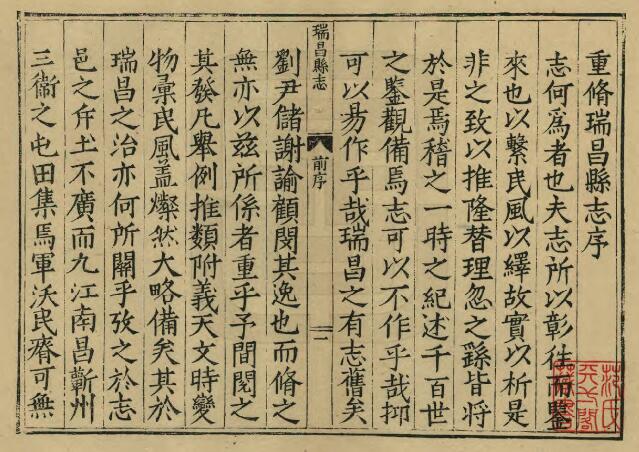 重脩瑞昌縣志序
志何爲者也夫志所以彰往而鑒
來也以繫民風以繹故實以析是
非之致以推隆替理忽之繇皆將
於是焉稽之一時之紀述千百世
之鑒觀備焉志可以不作乎哉抑
可以易作乎哉瑞昌之有志舊矣
瑞昌縣志
前序
一
劉尹儲謝諭顧閔其逸也而脩之
無亦以兹所係者重乎予間閱之
其發凡舉例推類附義天文時變
物彙民風盖燦然大略備矣其於
瑞昌之治亦何所關乎攷之於志
邑之斥土不廣而九江南昌蘄州
三衞之屯田集焉軍沃民瘠可無
范氏
天一閣
藏書